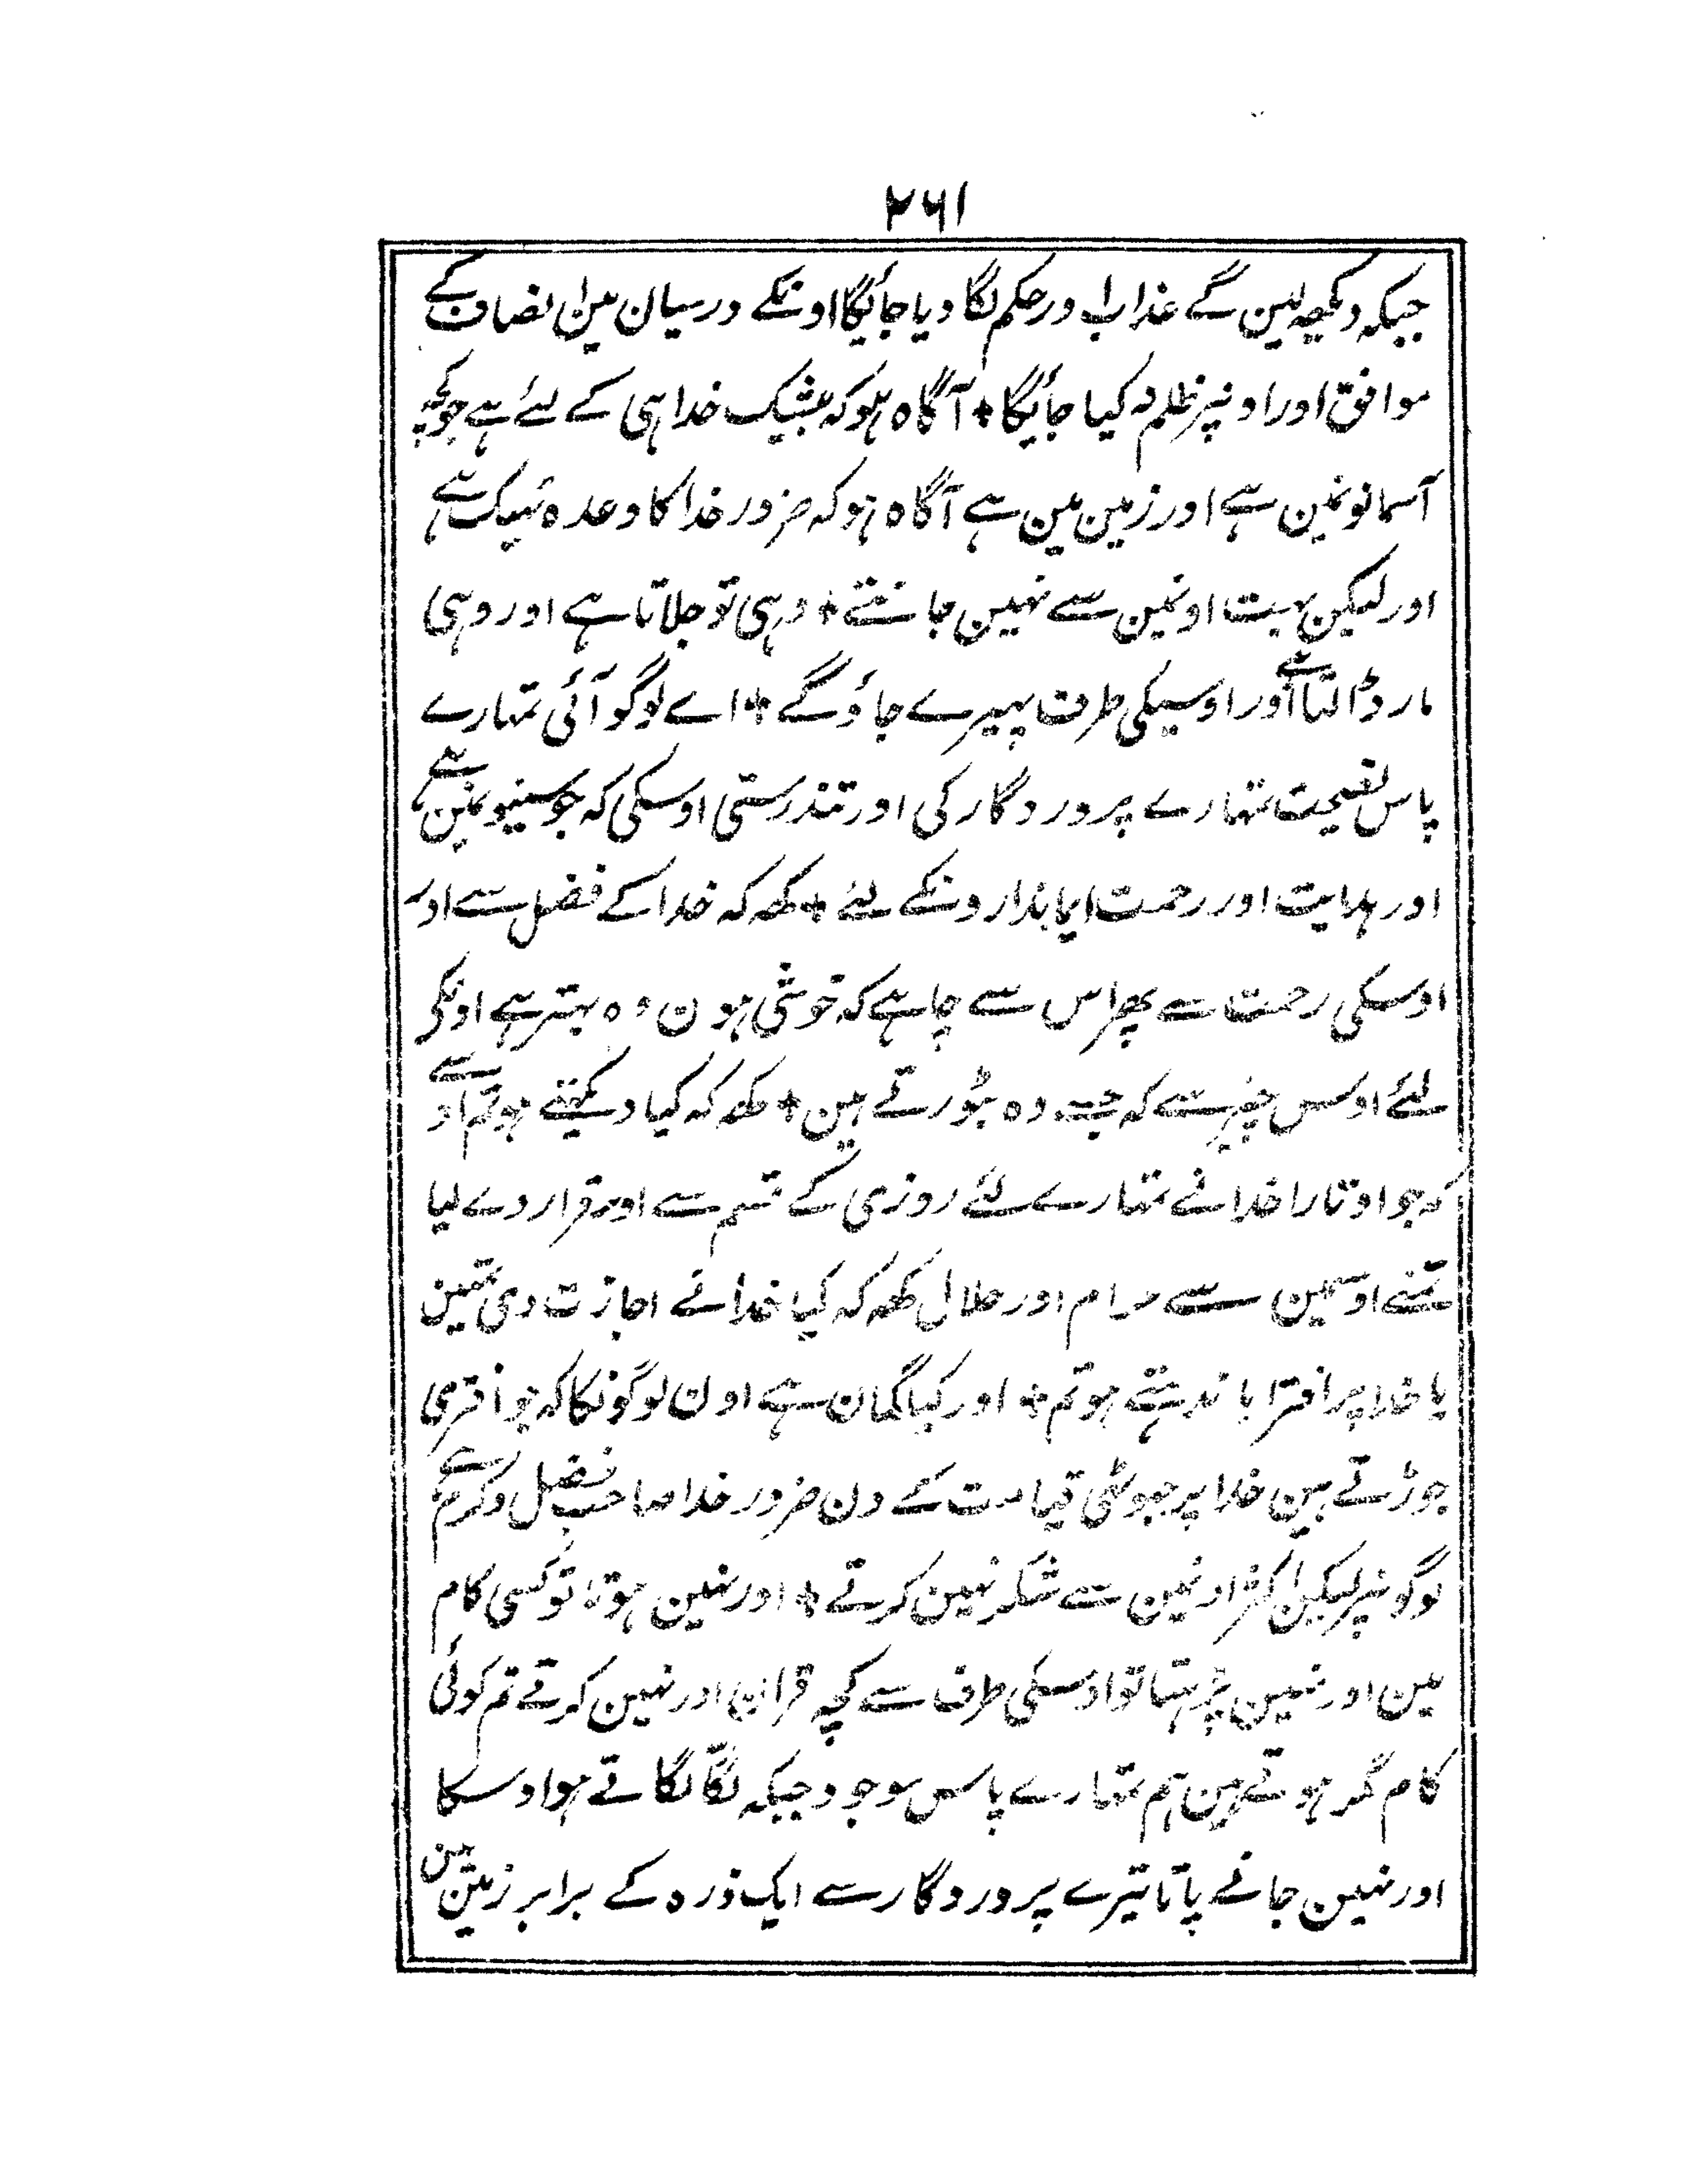 ۲۶۱
جبکہ دیکھہ لین گے عذاب اور حکم لگا دیا جائیگا اونکے درمیان مین انصاف کے
موافق اور اونپر ظلم نہ کیا جائیگا + آگاہ ہو کہ بیشک خدا ہی کے لئے ہے جو کچہ
آسمانونمین ہے اور زمین مین ہے آگاہ ہو کہ ضرور خدا کا وعدہ ٹہیک ہے
اور لیکن بہت اونمین سے نہین جانتے + وہی تو جلاتا ہے اور وہی
مار ڈالتا ہے اور اوسیکی طرف پہیرے جاؤ گے + اے لوگو آئی تمہارے
پاس نصیحت تمہارے پروردگار کی اور تندرستی اوسکی کہ جو سینونمین ہے
اور ہدایت اور رحمت ایماندارونکے لئے + کہہ کہ خدا کے فضل سے اور
اوسکی رحمت سے پھر اس سے چاہے کہ خوشی ہون وہ بہتر ہے اونکی
لئے اوس چیز سے کہ جسے وہ بٹورتے ہین + کہہ کہ کیا دیکہتے ہو تم اوسے
کہ جو اوتارا خدا نے تمہارے لئے روزی کے قسم سے اور قرار دے لیا
تمنے اوسمین سے حرام اور حلال کہہ کہ کیا خدا نے اجازت دی تمہین
یا خدا پر افترا باندہتے ہو تم + اور کیا گمان ہے اون لوگونکا کہ جو افتری
جوڑتے ہین خدا پر جہوٹھی قیامت کے دن ضرور خدا صاحب فضل و کرم ہے
لوگونپر لیکن اکثر اونمین سے شکر نہین کرتے + اور نہین ہوتا تو کسی کام
مین اور نہین پڑہتا تو اوسکی طرف سے کچہ قران اور نہین کرتے تم کوئی
کام مگر ہوتے ہین ہم تمہارے پاس موجود جبکہ لگّا لگاتے ہو اوسکا
اور نہین جانے پاتا تیرے پروردگار سے ایک ذرہ کے برابر زمین مین